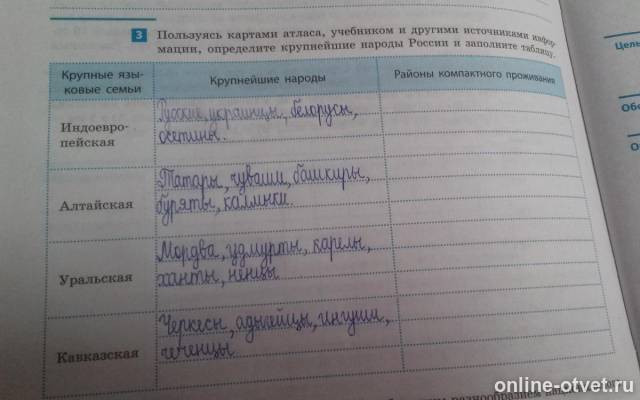 3 Пользуясь картами атласа, учебником и другими источниками инфор-
мации, определите крупнейшие народы России и заполните таблицу.
Крупные язы-
ковые семьи
Крупнейшие народы
Районы компактного проживания
Индоевро-
пейская
Русские, украинцы, белорусы,
осетины.
Алтайская
Татары, чуваши, башкиры,
буряты, калмыки
Уральская
Мордва, удмурты, карелы,
ханты, ненцы
Кавказская
Черкесы, адыгейцы, ингуши,
чеченцы
Цель
Обо
О
разнообразием
online-otvet.ru